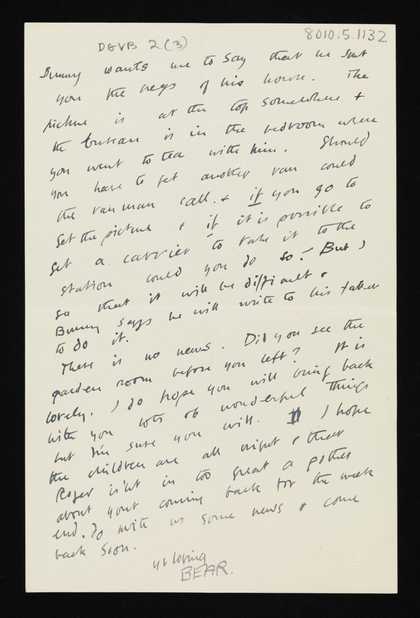 DGVB 2 (3)
8010.5.1132
Bunny wants me to say that he sent
you the keys of his house. The
picture is at the top somewhere &
the bureau is in the bedroom where
you went to tea with him. Should
you have to get another van could
the van man call. & if you go to
get the picture & if it is possible to
get a carrier to take it to the
station could you do so? But I
so that it will be difficult &
Bunny says he will write to his father
to do it.
There is no news. Did you see the
garden room before you left? It is
lovely. I do hope you will bring back
with you lots of wonderful things
but I'm sure you will. I hope
the children are all right & that
Roger isn't in too great a pother
about your coming back for the week
end. Do write us some news & come
back soon.
yr loving
BEAR.